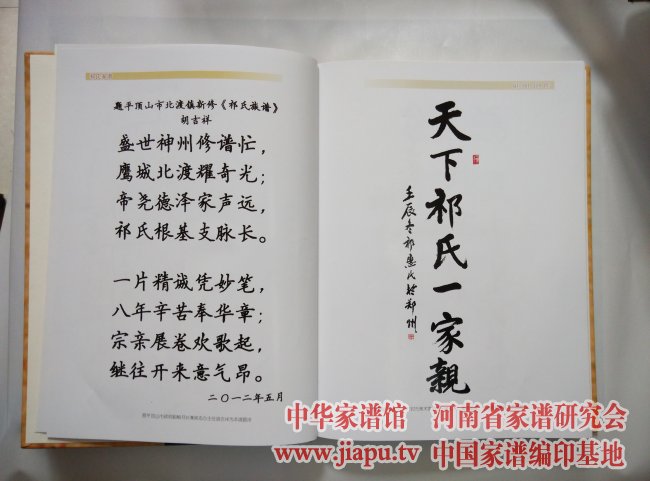 题平顶山市北渡镇新修《祁氏族谱》
胡吉祥
盛世神州修谱忙，
鹰城北渡耀奇光；
帝尧德泽家声远，
祁氏根基支脉长。
一片精诚凭妙笔，
八年辛苦奉华章；
宗亲展卷欢歌起，
继往开来意气昂。
二〇一二年五月
天下祁氏一家親
壬辰冬祁惠民於郑州
中华家谱馆 河南省家谱研究会
www.jiapu.tv 中国家谱编印基地